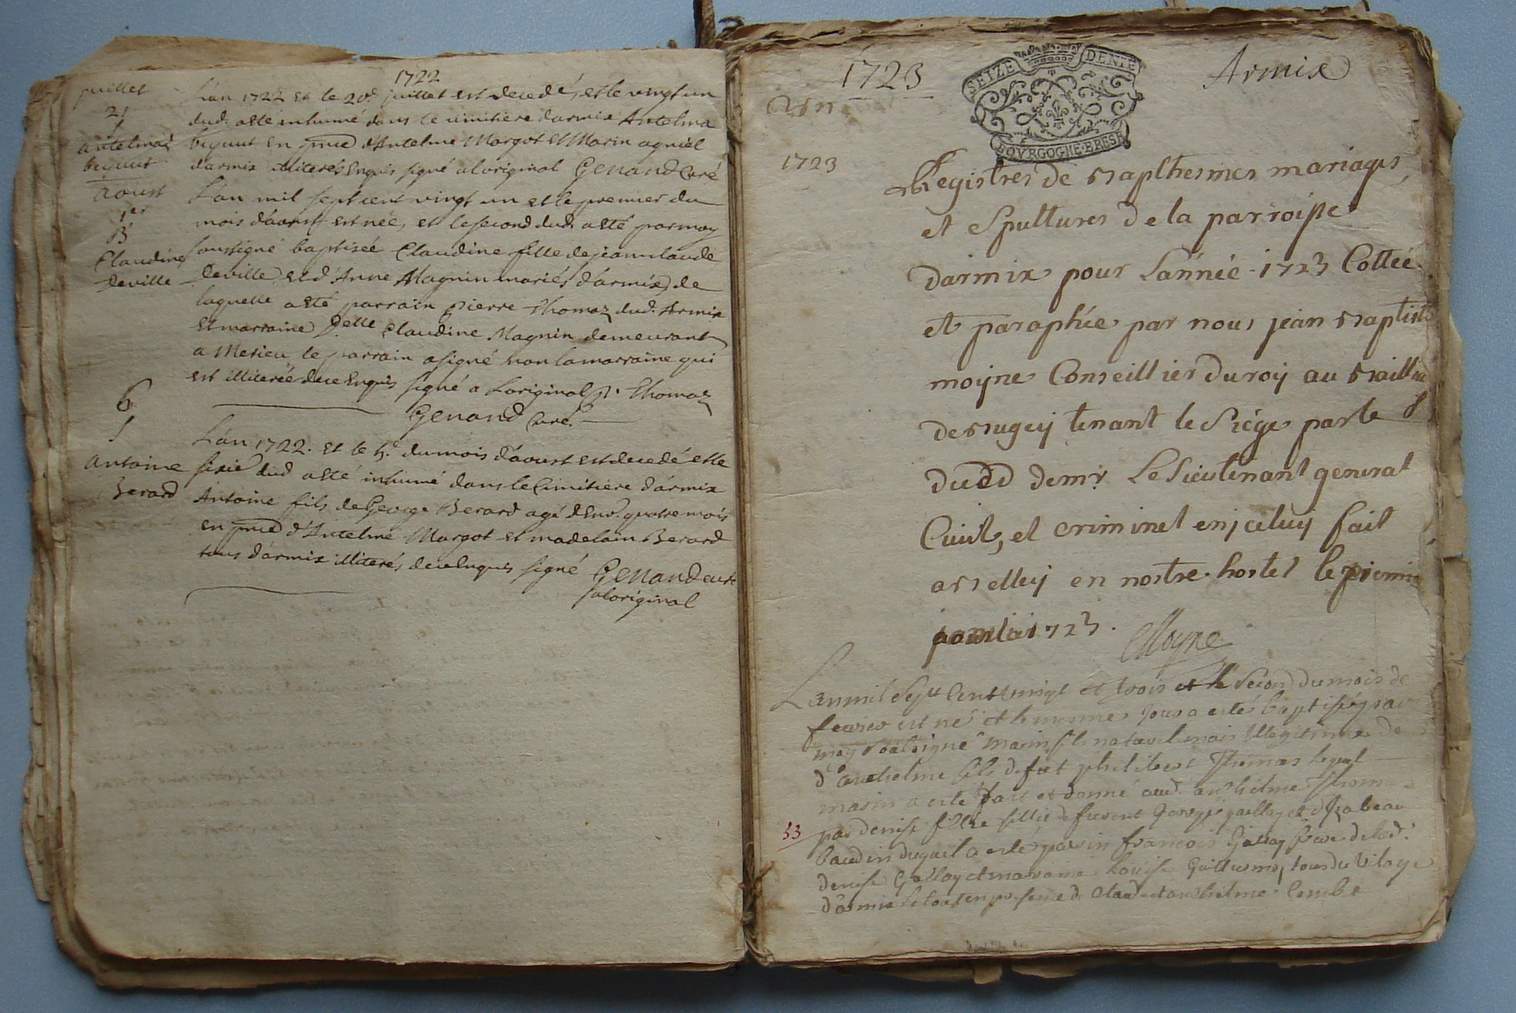 1722
juillet
21
†
antelme
beguut
L'an 1722 et le 20e juillet est decedé, et le vingt un
dud. a esté inhumé dans le cimitiere d'armix Antelme
beguut en pnce d'Antelme Margot et Marin agniel
d'armix illiterés enquis signé a l'original Genand Curé
aoust
1er
B
Claudine
deville
L'an mil sept cent vingt un et le premier du
mois d'aoust est née, et le second dud. a esté par moy
soussigné baptisée Claudine fille de jeanclaude
deville et d'Anne Magnin mariés d'armix de
laquelle a esté parrain pierre Thomaz dud. Armix
et marraine Delle Claudine Magnin demeurant
a Merieu le parrain a signé non la marraine qui
est illiterée de ce enquis signé a l'original p. Thomaz
Genand Curé
6
†
antoine
Berard
L'an 1722. et le 5e du mois d'aoust est decedé et le
sixie dud a esté inhumé dans le Cimitiere d'armix
Antoine fils de George Berard agé d'env. quatre mois
en pnce d'Antelme Margot et madelain Berard
tous d'armix illiterés de ce enquis signé Genand curé
a l'original
1723
SEIZE DENIE
BOVRGOGNE BRESSE
Armix
Un
1723
Registres de Bapthesmes mariages,
et Spultures de la parroisse
d'armix pour L'année 1723 Cottée
et paraphée par nous jean Baptiste
moyne Conseillier du roy au Baillia
de Bugey tenant le Siége par le
dudd demr Le Lieutenant general
Ciuil, et criminel en jceluy fait
a Belley en nostre hostel le premier
januier 1723.
Moyne
L'an mil Sept Cent vingt et trois et le Second du mois de
feurier est né et le mesme Jour a esté baptisé par
moy soussigné marin fils naturel mais Illegitime de
d'anthelme fils de fut philibert Thomas lequel
marin a esté fait et donné aud. anthelme Thom
53
par denise fille de furent et d'Izabeau
baudin duquel a esté parin francois Gallay frere de lad.
denise Gallay et maraine Louise Guillermoz tous du Vilage
d'armix le tout en presence de Claude et anthelme